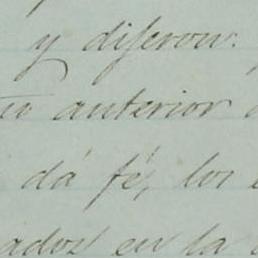 y dijeron:
anterior
dá fé, los
ados en la